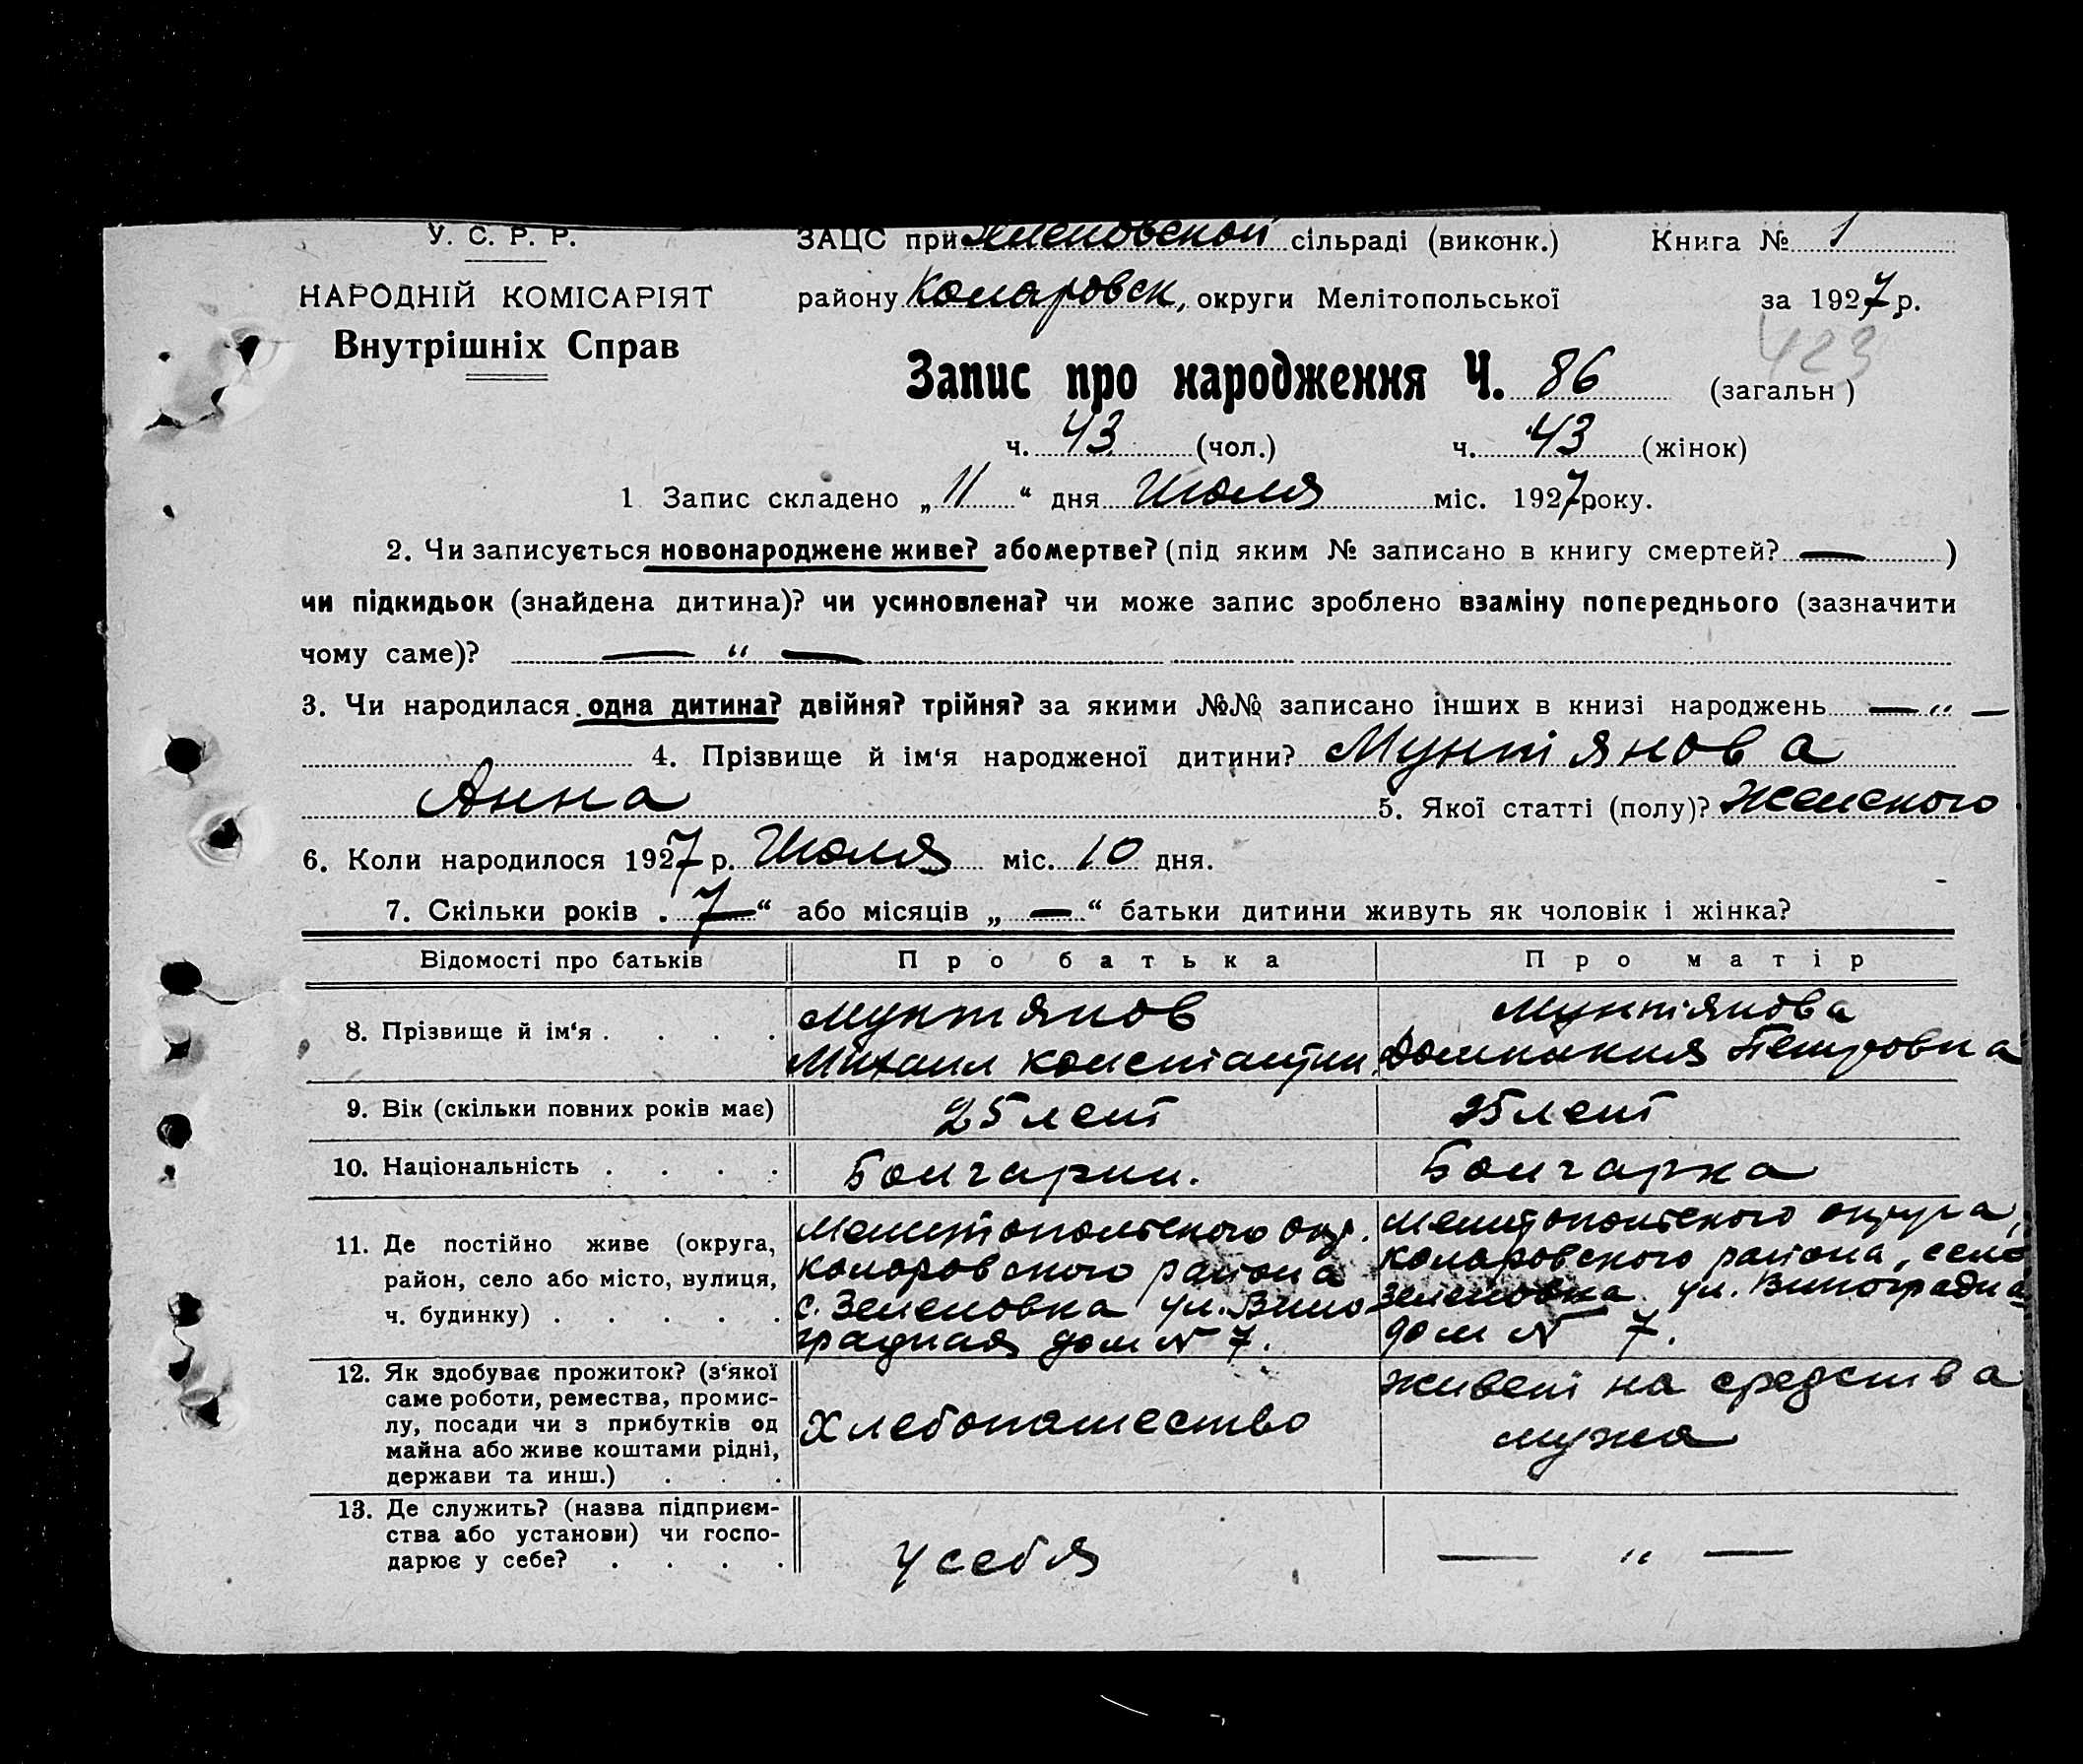 У. С. Р. Р.
НАРОДНІЙ КОМІСАРІЯТ
Внутрішніх Справ
ЗАЦС при Зеленовской сільраді (виконк.) Книга № 1
району Коларовск, округи Мелітопольської за 1927 р.
423
Запис про народження Ч. 86 (загальн )
ч. 43 (чол.) ч. 43 (жінок)
1 Запис складено „ 11 “ дня Июля міс. 1927 року.
2. Чи записується новонароджене живе? або мертве? (під яким № записано в книгу смертей? — )
чи підкидьок (знайдена дитина)? чи усиновлена? чи може запис зроблено взаміну попереднього (зазначити
чому саме)? — “ —
3. Чи народилася одна дитина? двійня? трійня? за якими №№ записано інших в книзі народжень — “ —
4. Прізвище й ім‘я народженої дитини? Мунтянова
Анна 5. Якої статті (полу)? Женского
6. Коли народилося 1927 р. Июля міс. 10 дня.
7. Скільки років „ 7 “ або місяців „ — “ батьки дитини живуть як чоловік і жінка?
Відомості про батьків Про батька Про матір
8. Прізвище й ім‘я . . . .
Мунтянов
Михаил Константин.
Мунтянова
Домникия Петровна
9. Вік (скільки повних років має) 25 лет 25 лет
10. Національність . . . . Болгарин. Болгарка
11. Де постійно живе (округа,
район, село або місто, вулиця,
ч. будинку) . . . . .
Мелитопольского окр.
Коларовского района
с. Зеленовка ул. Вино
градная дом № 7.
Мелитопольского округа,
Коларовского района, село
Зеленовка ул. Виноградна
дом № 7.
12. Як здобуває прожиток? (з‘якої
саме роботи, ремества, промис-
лу, посади чи з прибутків од
майна або живе коштами рідні,
держави та инш.) . . .
Хлебопашество
живет на средства
мужа
13. Де служить? (назва підприєм-
ства або установи) чи госпо-
дарює у себе? . . . .
у себя
— “ —